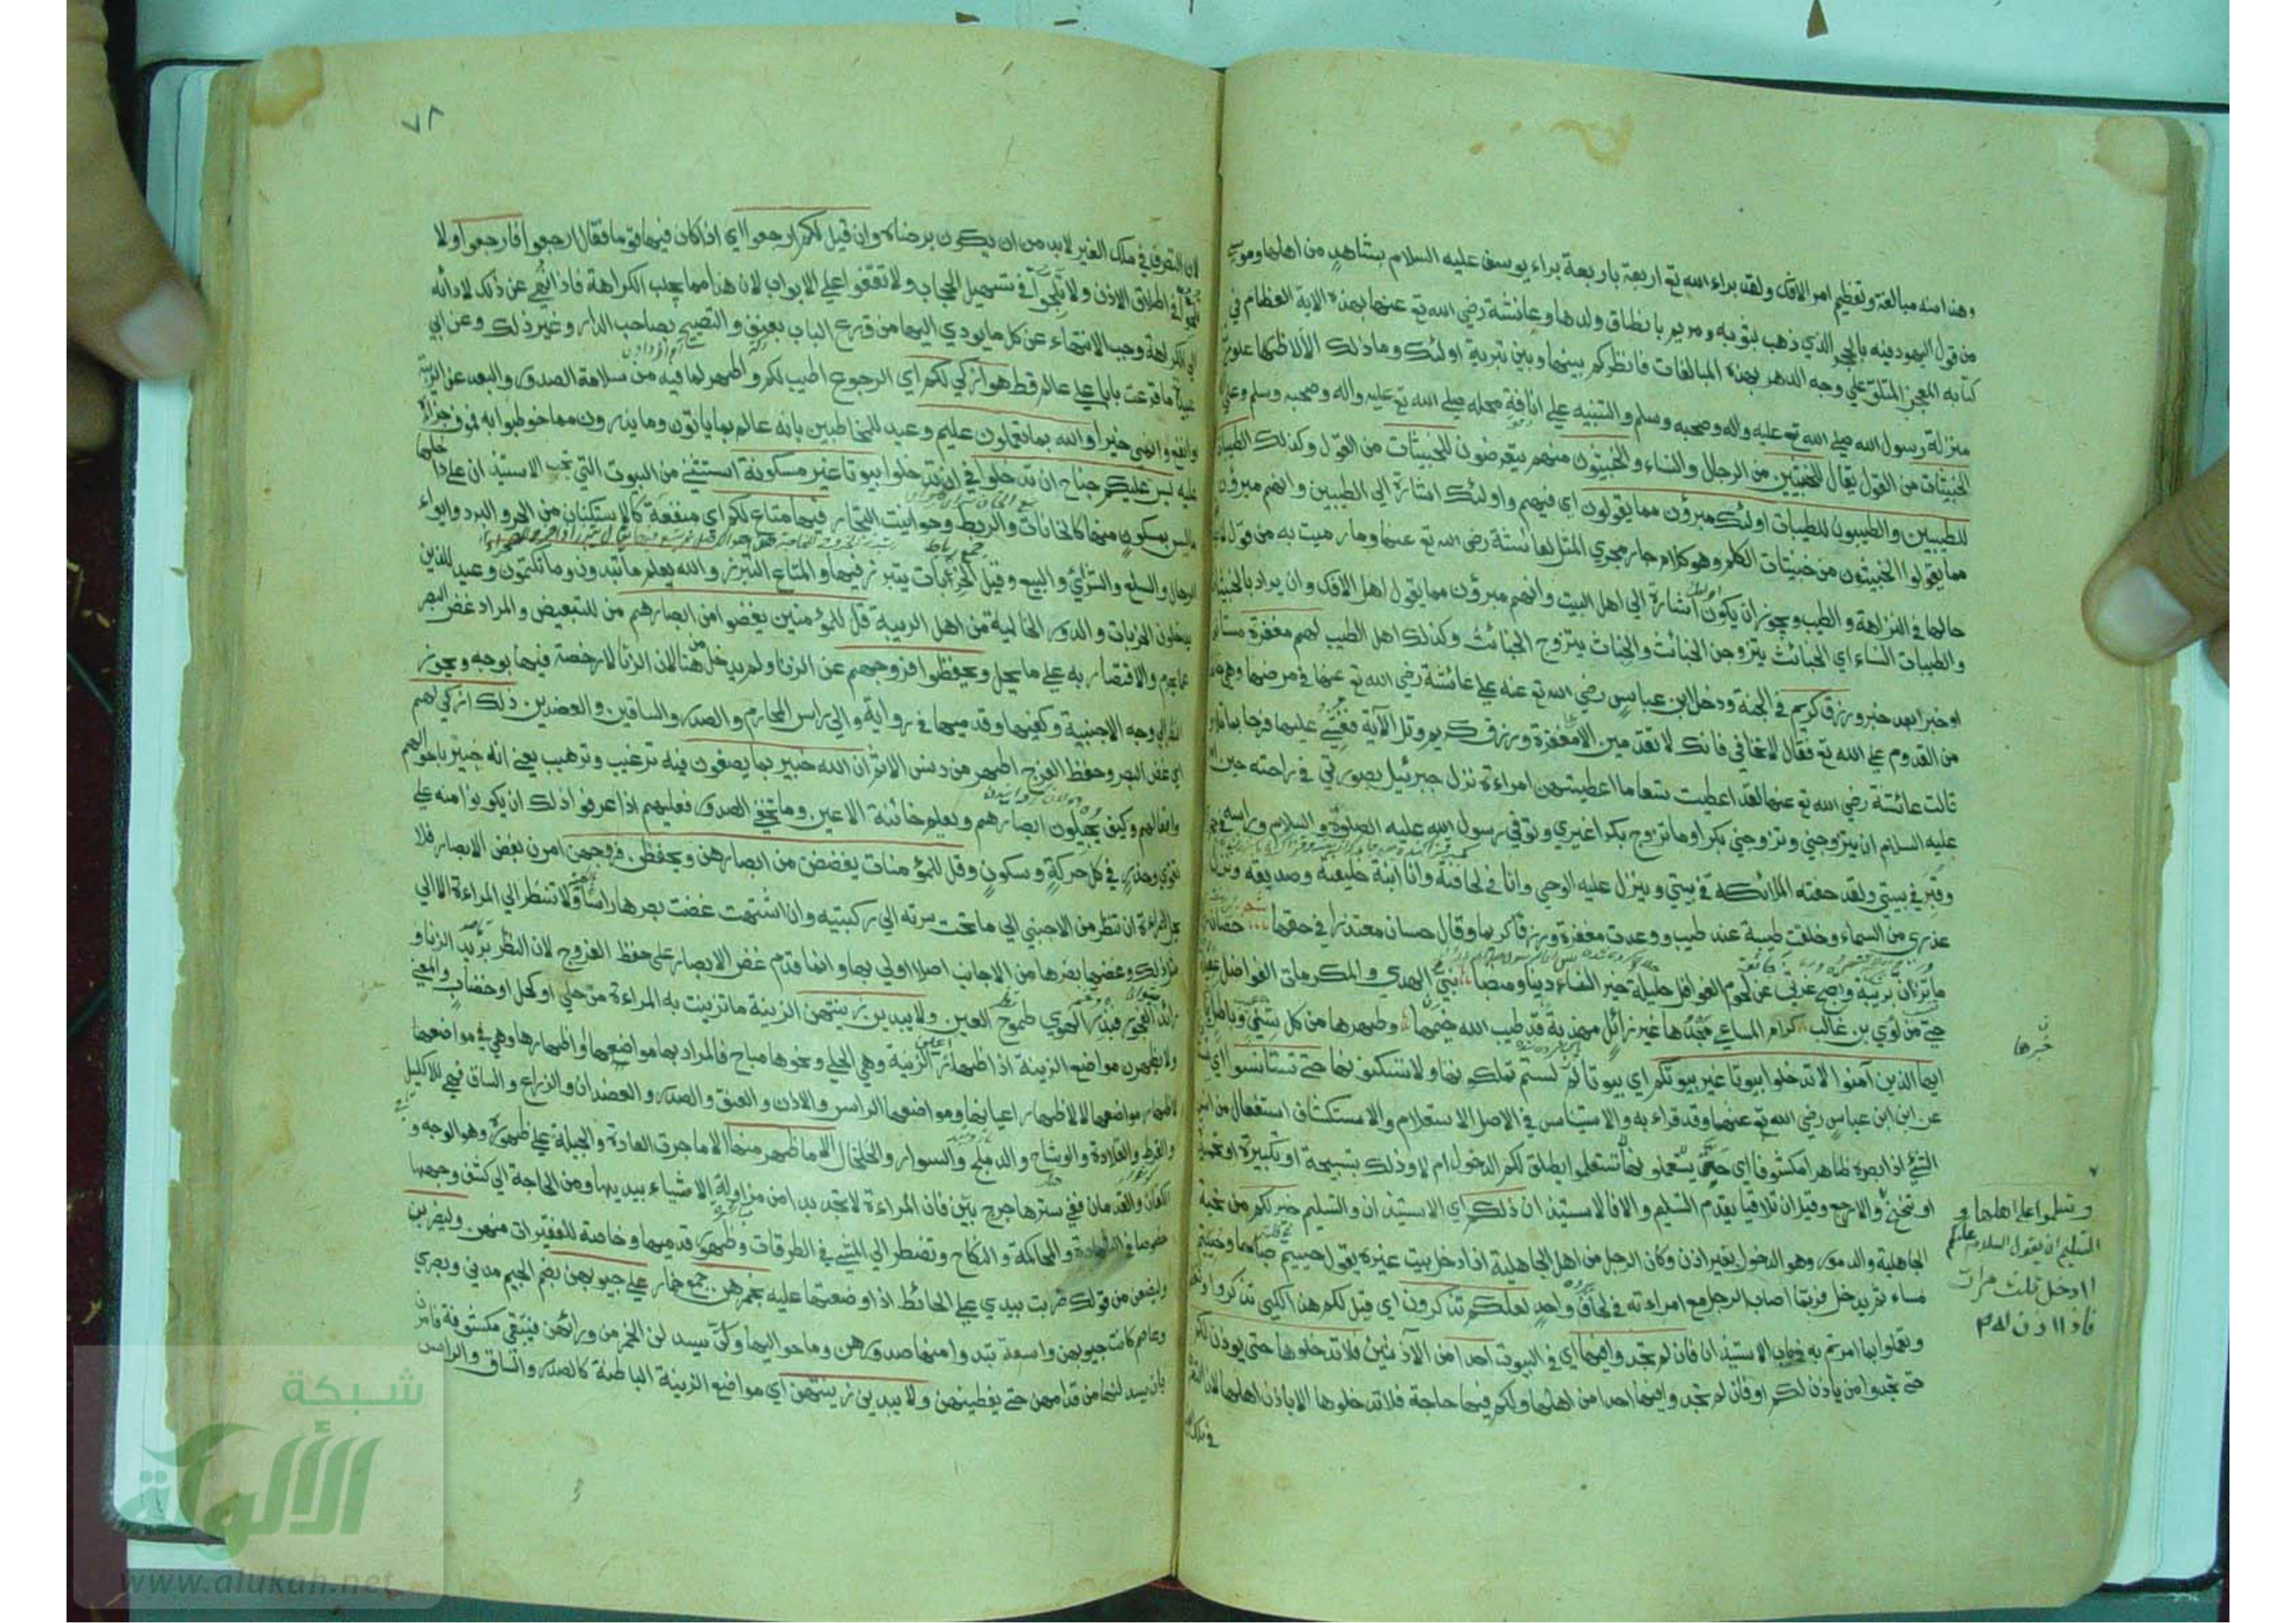 وهذا منه مبالغة وتعظيم امر الافك ولقد براء الله تع اربعة باربعة براء يوسف عليه السلام بشاهدٍ من اهلها وموسى
من قول اليهود فيه بالحجر الذي ذهب بثوبه ومريم بانطاق ولدها وعائشة رضي الله تع عنها بهذه الاية العظام في
كتابه المعجز المتلوّ على وجه الدهر بهذه المبالغات فانظر كم بينها وبين تبرية اولئك وما ذلك الا لاظهار علوّ
منزلة رسول الله صلى الله تع عليه واله وصحبه وسلم والتنبيه على انافة محله صلى الله تع عليه واله وصحبه وسلم
الخبيثات من القول يقال للخبيثين من الرجال والنساء والخبيثون منهم يتعرضون للخبيثات من القول وكذلك الطيبات
للطيبين والطيبون للطيبات اولئك مبرؤن مما يقولون اي فيهم واولئك اشارة الى الطيبين وانهم مبرؤن
مما يقولوا الخبيثون من خبيثات الكلم وهو كلام جار مجرى المثل لعائشة رضي الله تع عنها وما رميت به من قول
حالها في النزاهة والطيب ويجوز ان يكون اشارة الى اهل البيت وانهم مبرؤن مما يقول اهل الافك وان يراد بالخبيثات
والطيبات النساء اي الخبائث يتزوجن الخباث والخباث يتزوج الخبائث وكذلك اهل الطيب لهم مغفرة
او خبر بعد خبر ورزق كريم في الجنة ودخل ابن عباس رضي الله تع عنه على عائشة رضي الله تع عنها في مرضها وهي
من القدوم على الله تع فقال لا تخافي فانك لا تقدمين الا مغفرة ورزق كريم وتلا الآية فغشي عليها فرحا بما تلا
قالت عائشة رضي الله تع عنها لقد اعطيت تسعا ما اعطيتهن امراءة نزل جبرئيل بصورتي في راحته حين
عليه السلام ان يتزوجني وتزوجني بكرا وما تزوج بكرا غيري وتوفي رسول الله عليه الصلوة والسلام وراسه في
وقبر في بيتي ولقد حفته الملائكة في بيتي وينزل عليه الوحي وانا في لحافه وانا ابنة خليفته وصديقه ونزل
عذري من السماء وخلقت طيبة عند طيب ووعدت مغفرة ورزقا كريما وقال حسان معتذرا في حقها حصان
ما تزن بريبة وتصبح غرثى عن لحوم الغوافل حليلة خير النساء دينا ومنصبا نبي الهدى والمكرمات الفواضل
حيّ من لؤي بن غالب كرام المساعي مجدها غير زائل مهذبة قد طيب الله خيمها وطهرها من كل شيء وباطل
ايها الذين آمنوا لا تدخلوا بيوتا غير بيوتكم اي بيوتا لستم تملكونها ولا تسكنونها حتى تستانسوا اي
عن ابن عباس رضي الله تع عنهما وقد قراء به والاستيناس في الاصل الاستعلام والاستكشاف استفعال من انس
الشئ اذا ابصره ظاهرا مكشوفا اي حتى تستعلموا ايطلق لكم الدخول ام لا وذلك بتسبيحة او تكبيرة او تحميدة
او تنحنح والارجح وقيل ان تلاقيا يقدم التسليم والا فالاستيذان ذلكم اي الاستيذان والتسليم خير لكم من تحية
الجاهلية والدمور وهو الدخول بغير اذن وكان الرجل من اهل الجاهلية اذا دخل بيت غيره يقول حييتم صباحا وحييتم
مساء ثم يدخل فربما اصاب الرجل مع امراءته في لحاف واحد لعلكم تذكرون اي قيل لكم هذا لكي تذكروا
وتعملوا بما امرتم به في باب الاستيذان فان لم تجدوا فيها اي في البيوت احدا من الآذنين فلا تدخلوها حتى يوذن لكم
حتى تجدوا من ياذن لكم او فان لم تجدوا فيها احدا من اهلها ولكم فيها حاجة فلا تدخلوها الا باذن اهلها لان
خبرها
وتسلموا على اهلها و
التسليم ان يقول السلام عليكم
اادخل ثلث مرات
فاذا اذن له
٧٨
لان التصرف في ملك الغير لابد من ان يكون برضاه وان قيل لكم ارجعوا اي اذا كان فيها قوما فقال ارجعوا فارجعوا ولا
في اطلاق الاذن ولا تلجوا في تسهيل الحجاب ولا تقفوا على الابواب لان هذا مما يجلب الكراهة فاذا نهى عن ذلك لادائه
الى الكراهة وجب الانتهاء عن كل ما يودي اليها من قرع الباب بعنف والتصييح بصاحب الدار وغير ذلك وعن ابي
عبيد ما قرعت بابا على عالم قط هو ازكى لكم اي الرجوع اطيب لكم واطهر لما فيه من سلامة الصدور والبعد عن الريبة
او انفع وانمى خيرا والله بما تعملون عليم وعيد للمخاطبين بانه عالم بما ياتون وما يذرون مما خوطبوا به فموف جزاءه
عليه ليس عليكم جناح ان تدخلوا في ان تدخلوا بيوتا غير مسكونة استثنى من البيوت التي تجب الاستيذان على داخلها
ما ليس بمسكون منها كالخانات والربط وحوانيت التجار فيها متاع لكم اي منفعة كالاستكنان من الحر والبرد وايواء
الرحال والسلع والشرى والبيع وقيل الخربات يتبرز فيها والمتاع التبرز والله يعلم ما تبدون وما تكتمون وعيد للذين
يدخلون الخربات والدور الخالية من اهل الريبة قل للمؤمنين يغضوا من ابصارهم من للتبعيض والمراد غض البصر
عما يحرم والاقتصار به على ما يحل ويحفظوا فروجهم عن الزنا ولم يدخل من هنا لان الزنا لا رخصة فيها بوجه ويجوز
النظر الى وجه الاجنبية وكفيها وقدميها في رواية والى راس المحارم والصدر والساقين والعضدين ذلك ازكى لهم
اي غض البصر وحفظ الفرج اطهر من دنس الاثم ان الله خبير بما يصنعون فيه ترغيب وترهيب يعني انه خبير باحوالهم
وافعالهم وكيف يجيلون ابصارهم ويعلم خائنة الاعين وما تخفي الصدور فعليهم اذا عرفوا ذلك ان يكونوا منه على
تقوى وحذر في كل حركة وسكون وقل للمؤمنات يغضضن من ابصارهن ويحفظن فروجهن امرن بغض الابصار فلا
يحل للمراءة ان تنظر من الاجنبي الى ما تحت سرته الى ركبتيه وان اشتهت غضت بصرها راسا ولا تنظر الى المراءة الا الى
مثل ذلك وغضها بصرها من الاجانب اصلا اولى بها وانما قدم غض الابصار على حفظ الفروج لان النظر بريد الزنا و
رائد الفجور فبذر الهوى طموح العين ولا يبدين زينتهن الزينة ما تزينت به المراءة من حلي او كحل او خضاب والمعنى
ولا يظهرن مواضع الزينة اذ اظهار عين الزينة وهي الحلي ونحوها مباح فالمراد بها مواضعها واظهارها وهي في مواضعها
لاظهار مواضعها لا لاظهار اعيانها ومواضعها الراس والاذن والعنق والصدر والعضدان والذراع والساق فهي للاكليل
والقرط والقلادة والوشاح والدملج والسوار والخلخال الا ما ظهر منها الا ما جرت العادة والجبلة على ظهوره وهو الوجه و
الكفان والقدمان ففي سترها حرج بيّن فان المراءة لا تجد بدا من مزاولة الاشياء بيديها ومن الحاجة الى كشف وجهها
خصوصا في الشهادة والمحاكمة والنكاح وتضطر الى المشي في الطرقات وظهور قدميها وخاصة للفقيرات منهن وليضربن
وليضعن من قولك ضربت بيدي على الحائط اذا وضعتها عليه بخمرهن جمع خمار على جيوبهن بضم الجيم مدني وبصري
وعاصم كانت جيوبهن واسعة تبدوا منها صدورهن وما حواليها وكنّ يسدلن الخمر من ورائهن فتبقى مكشوفة فامرن
بان يسدلنها من قدامهن حتى يغطينهن ولا يبدين زينتهن اي مواضع الزينة الباطنة كالصدر والساق والراس
شبكة
الألوكة
www.alukah.net